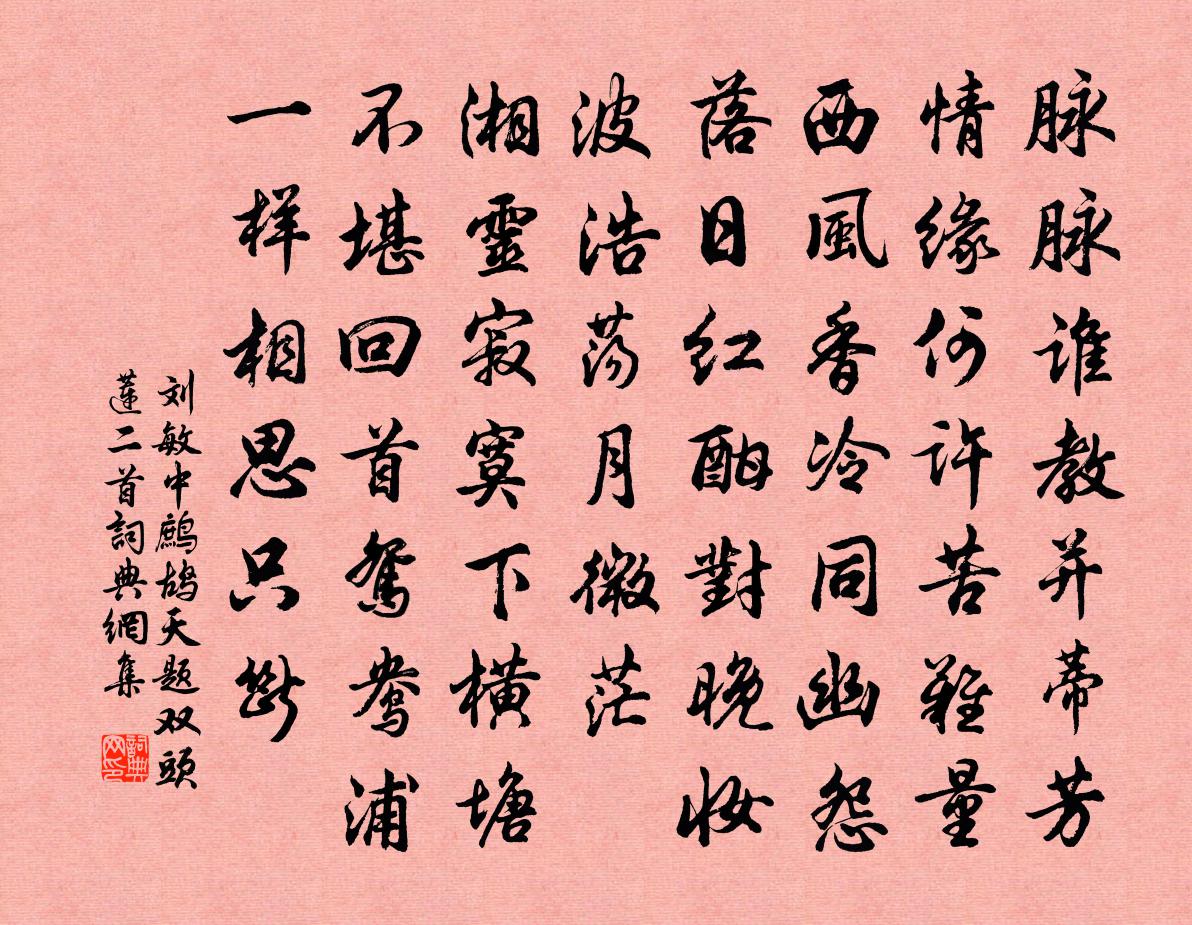 脉脉谁教并蒂芳
情缘何许苦難量
西風香冷同幽怨
落日红酣對晚妆
波浩荡月微茫
湘靈寂寞下横塘
不堪回首鸳鸯浦
一样相思只断
刘敏中鹧鸪天题双頭
蓮二首詞典網集
詞典网印